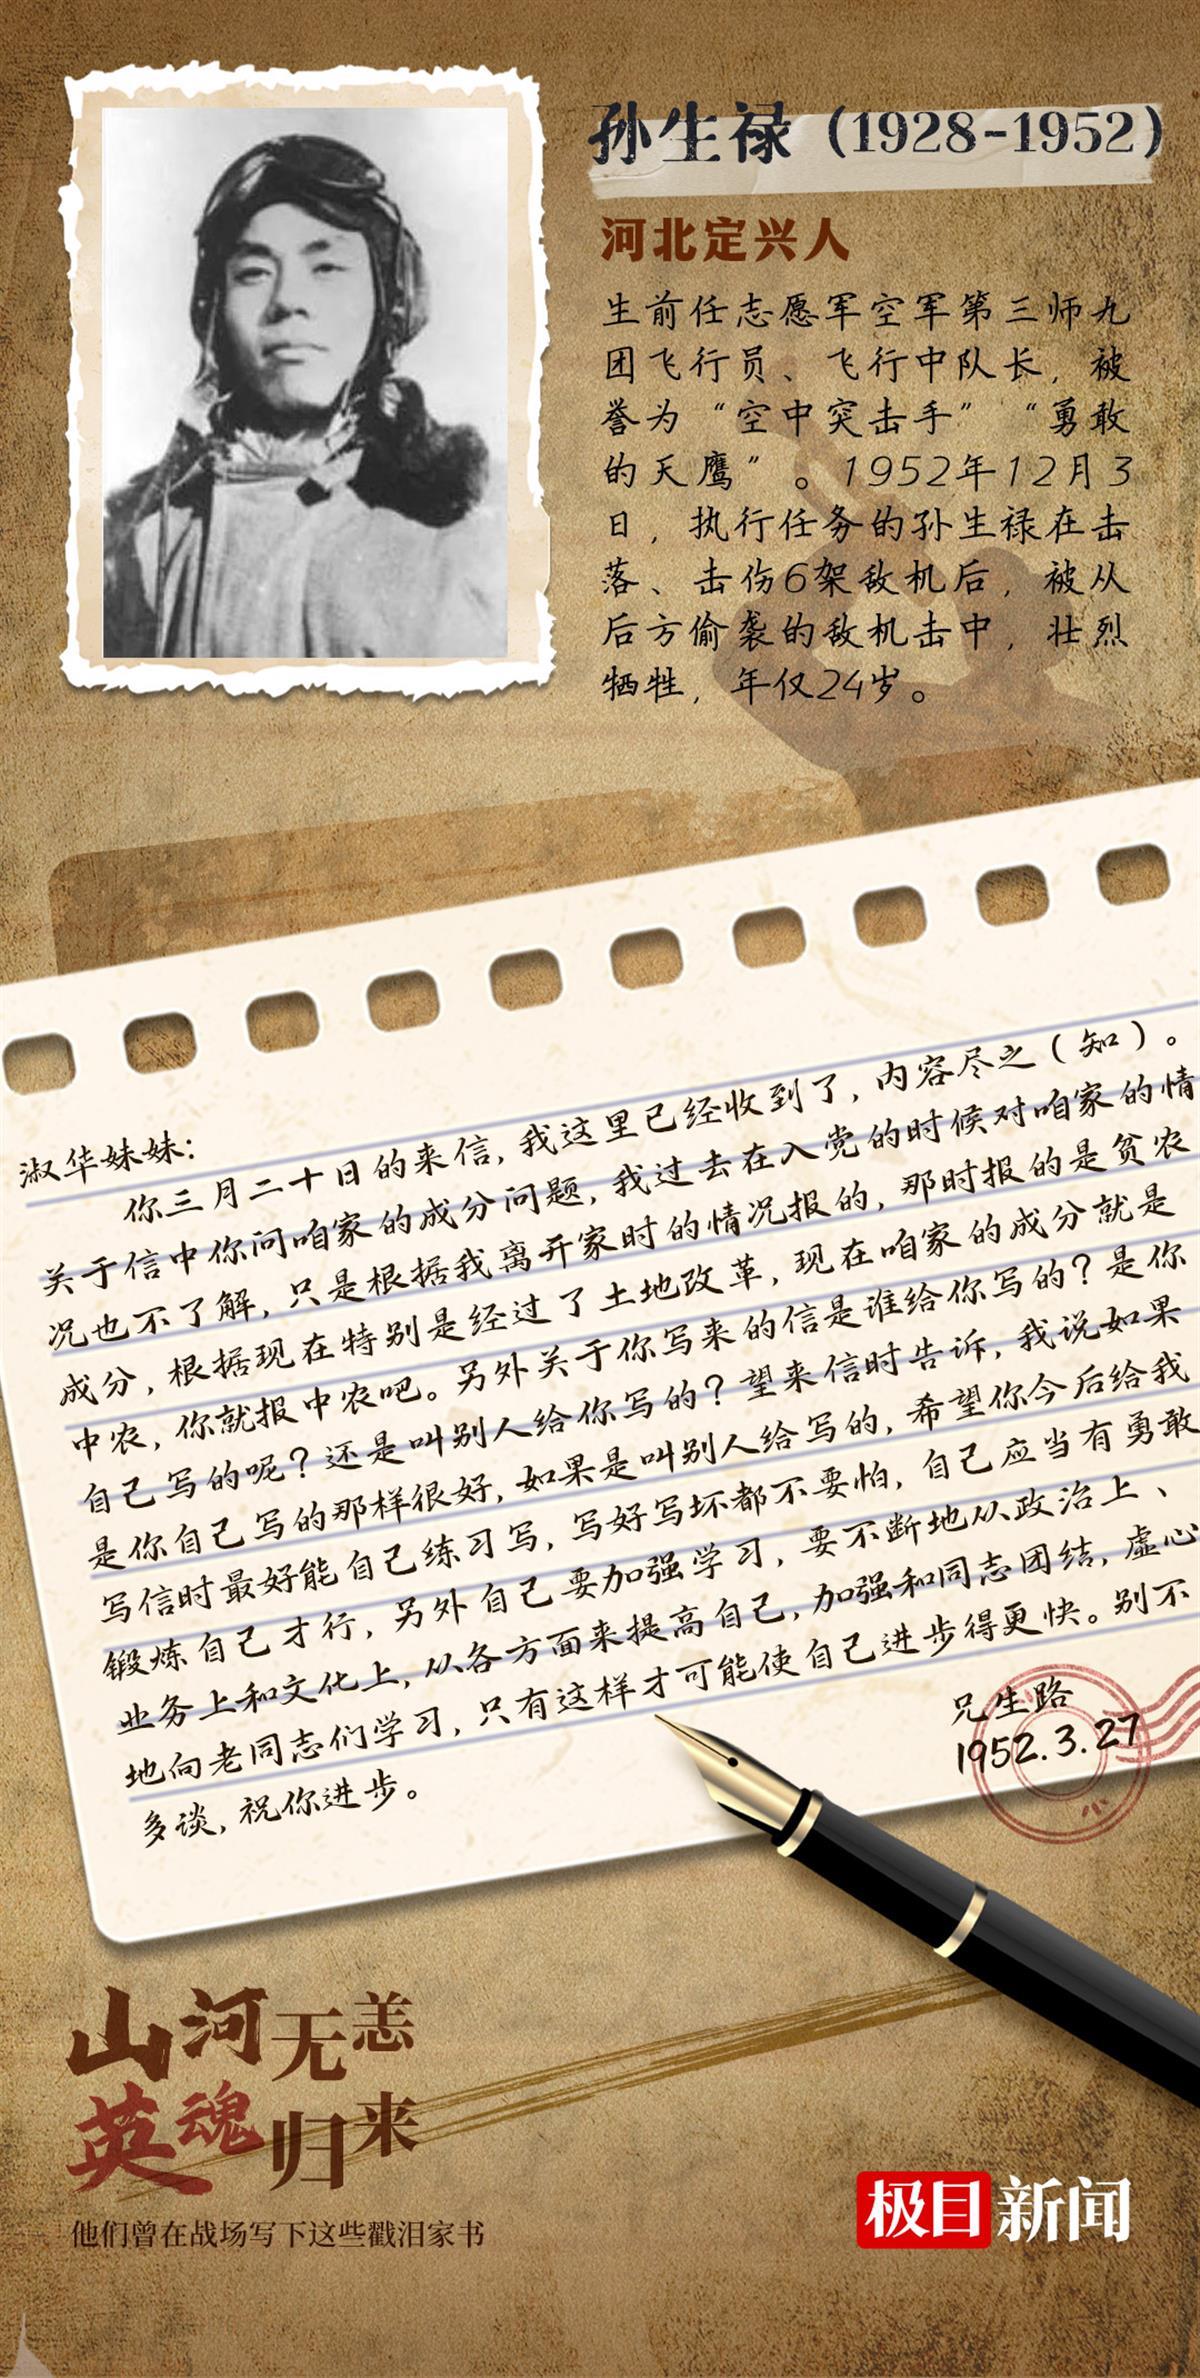 孙生禄（1928-1952）
河北定兴人
生前任志愿军空军第三师九
团飞行员、飞行中队长，被
誉为“空中突击手”“勇敢
的天鹰”。1952年12月3
日，执行任务的孙生禄在击
落、击伤6架敌机后，被从
后方偷袭的敌机击中，壮烈
牺牲，年仅24岁。
淑华妹妹：
你三月二十日的来信，我这里已经收到了，内容尽之（知）。
关于信中你问咱家的成分问题，我过去在入党的时候对咱家的情
况也不了解，只是根据我离开家时的情况报的，那时报的是贫农
成分，根据现在特别是经过了土地改革，现在咱家的成分就是
中农，你就报中农吧。另外关于你写来的信是谁给你写的？是你
自己写的呢？还是叫别人给你写的？望来信时告诉，我说如果
是你自己写的那样很好，如果是叫别人给写的，希望你今后给我
写信时最好能自己练习写，写好写坏都不要怕，自己应当有勇敢
锻炼自己才行，另外自己要加强学习，要不断地从政治上、
业务上和文化上，从各方面来提高自己，加强和同志团结，虚心
地向老同志们学习，只有这样才可能使自己进步得更快。别不
多谈，祝你进步。
兄生路
1952.3.27
山河无恙
英魂归来
他们曾在战场写下这些戳泪家书
极目新闻